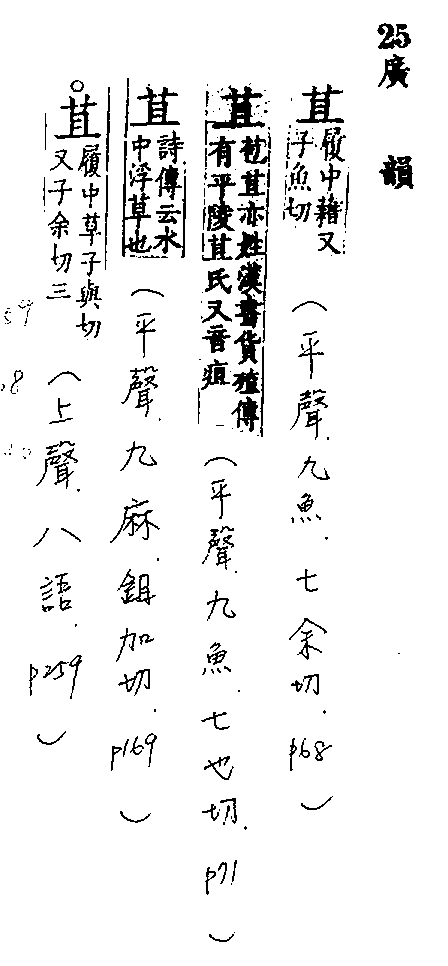 25廣韻
苴 履中藉又子魚切 (平聲九魚.七余切.p68)
苴 苞苴亦姓漢書貨殖傳有平陵苴氏又音疽 (平聲九魚.七也切.p71)
苴 詩傳云水中浮草也 (平聲九麻.鉏加切.p169)
苴 履中草子與切又子余切三 (上聲.八語.p259)